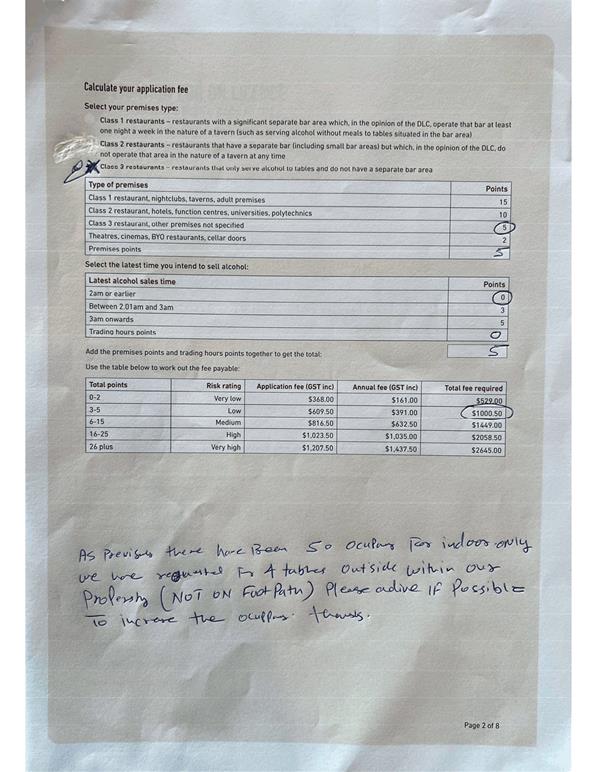 Calculate your application fee
Select your premises type:
Class 1 restaurants – restaurants with a significant separate bar area which, in the opinion of the DLC, operate that bar at least
one night a week in the nature of a tavern (such as serving alcohol without meals to tables situated in the bar area)
Class 2 restaurants – restaurants that have a separate bar (including small bar areas) but which, in the opinion of the DLC, do
not operate that area in the nature of a tavern at any time
Class 3 restaurants – restaurants that only serve alcohol to tables and do not have a separate bar area
Type of premises Points
Class 1 restaurant, nightclubs, taverns, adult premises 15
Class 2 restaurant, hotels, function centres, universities, polytechnics 10
Class 3 restaurant, other premises not specified 5
Theatres, cinemas, BYO restaurants, cellar doors 2
Premises points 5
Select the latest time you intend to sell alcohol:
Latest alcohol sales time Points
2am or earlier 0
Between 2.01am and 3am 3
3am onwards 5
Trading hours points 0
Add the premises points and trading hours points together to get the total: 5
Use the table below to work out the fee payable:
Total points Risk rating Application fee (GST inc) Annual fee (GST inc) Total fee required
0-2 Very low $368.00 $161.00 $529.00
3-5 Low $609.50 $391.00 $1000.50
6-15 Medium $816.50 $632.50 $1449.00
16-25 High $1,023.50 $1,035.00 $2058.50
26 plus Very high $1,207.50 $1,437.50 $2645.00
As Previously there have Been 50 Ocupany For indoor only
we have requested For 4 tables outside within our
Property (NOT ON FootPath) Please advise IF Possible
To increase the occupany. thanks.
Page 2 of 8